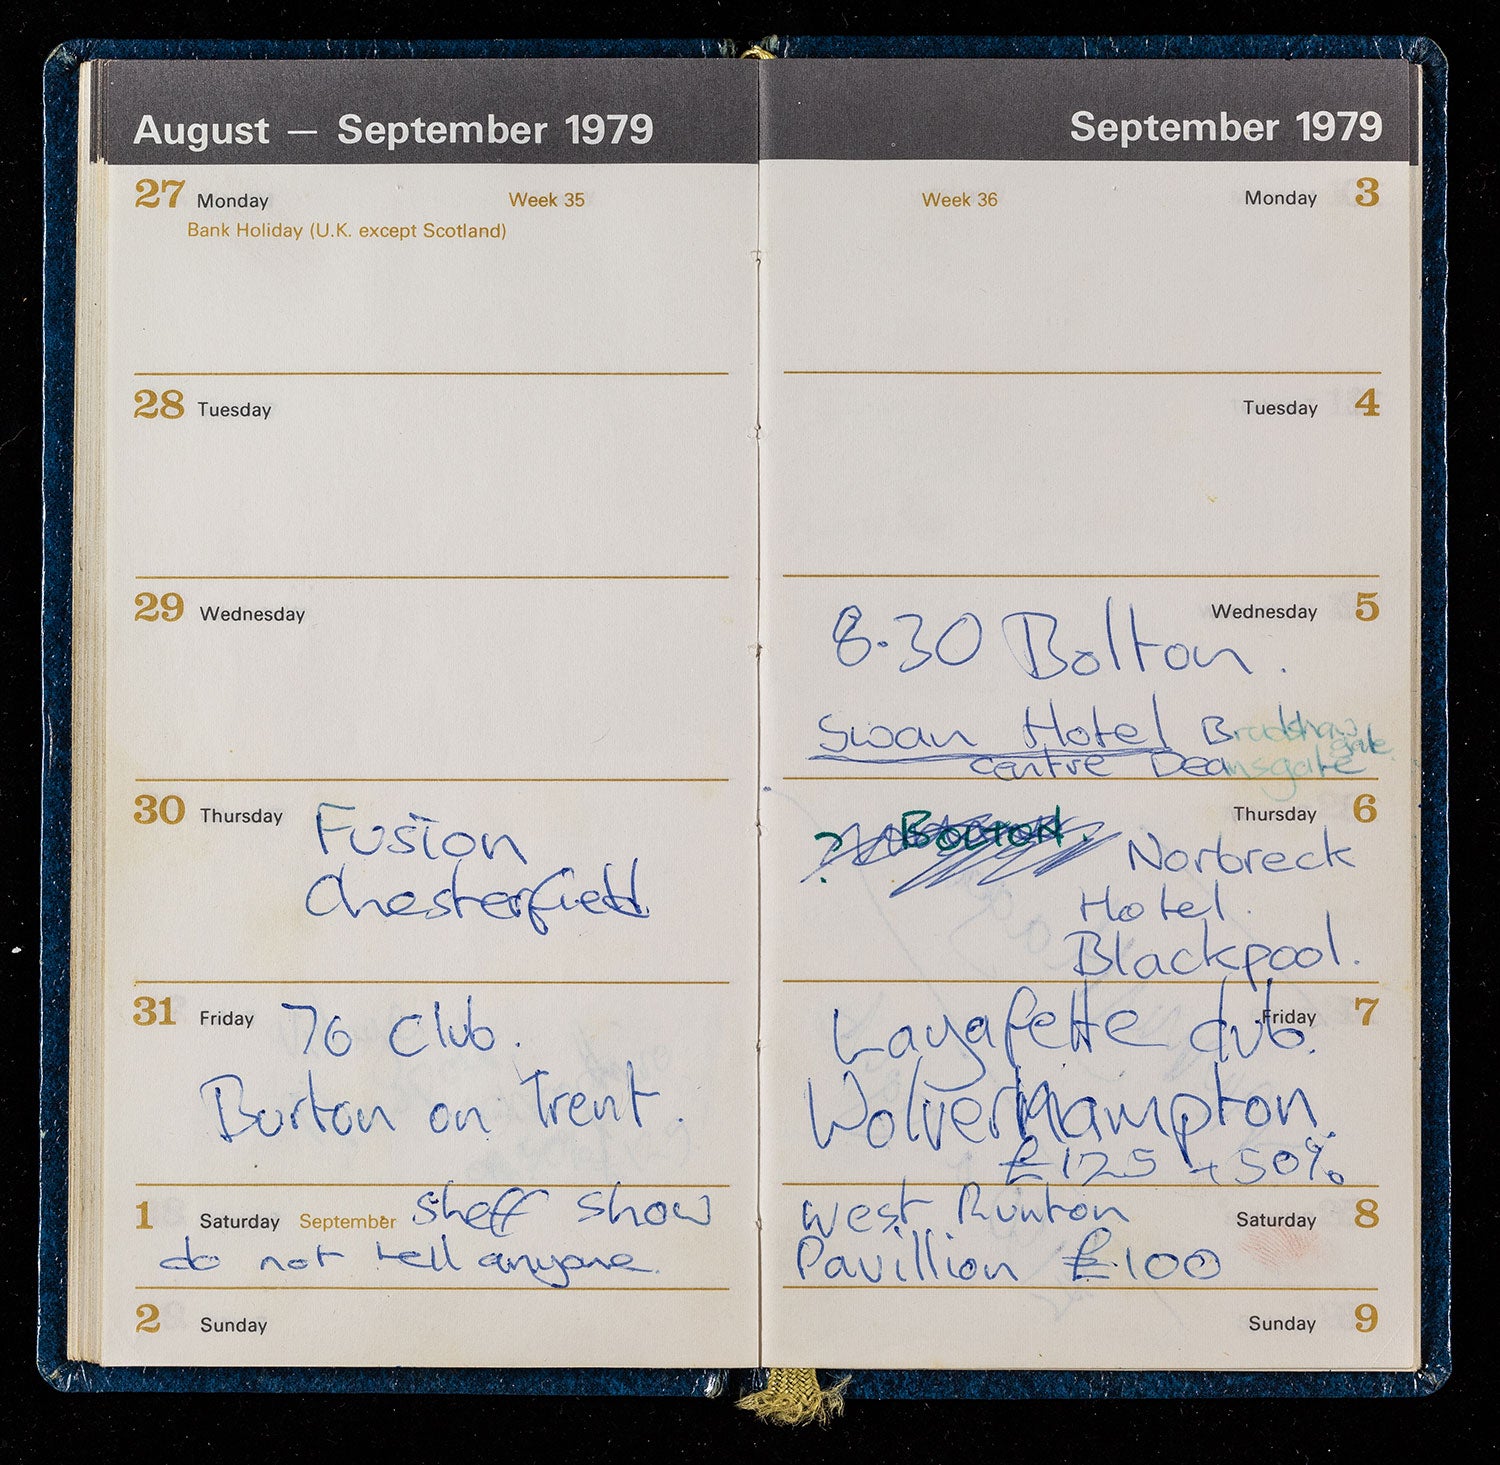 August — September 1979
27 Monday Week 35
Bank Holiday (U.K. except Scotland)
28 Tuesday
29 Wednesday
30 Thursday Fusion
Chesterfield
31 Friday 76 Club.
Burton on Trent.
1 Saturday September Sheff Show
do not tell anyone.
2 Sunday
September 1979
Week 36 Monday 3
Tuesday 4
Wednesday 5
8.30 Bolton.
Swan Hotel Bradshaw
gate
centre Deansgate
Thursday 6
? Bolton. Norbreck
Hotel.
Blackpool.
Friday 7
Layafette club.
Wolverhampton.
£125 + 50%
West Runton
Saturday 8
Pavillion £100
Sunday 9